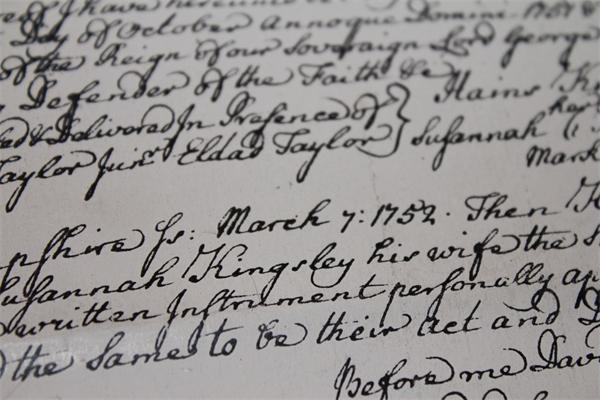 I have hereunto
Day of October Annoque Domini 1751 &
of the Reign of our Sovereign Lord George
Defender of the Faith &c
& Delivered In Presence of } Hains
Taylor Junr Eldad Taylor } Susannah
her
Mark
pshire Ss: March 7: 1752. Then
Susannah Kingsley his wife the
written Instrument personally ap
the same to be their act and
Before me Davi